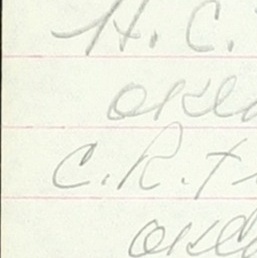 H. C.
Okla
C. R. +
Okla